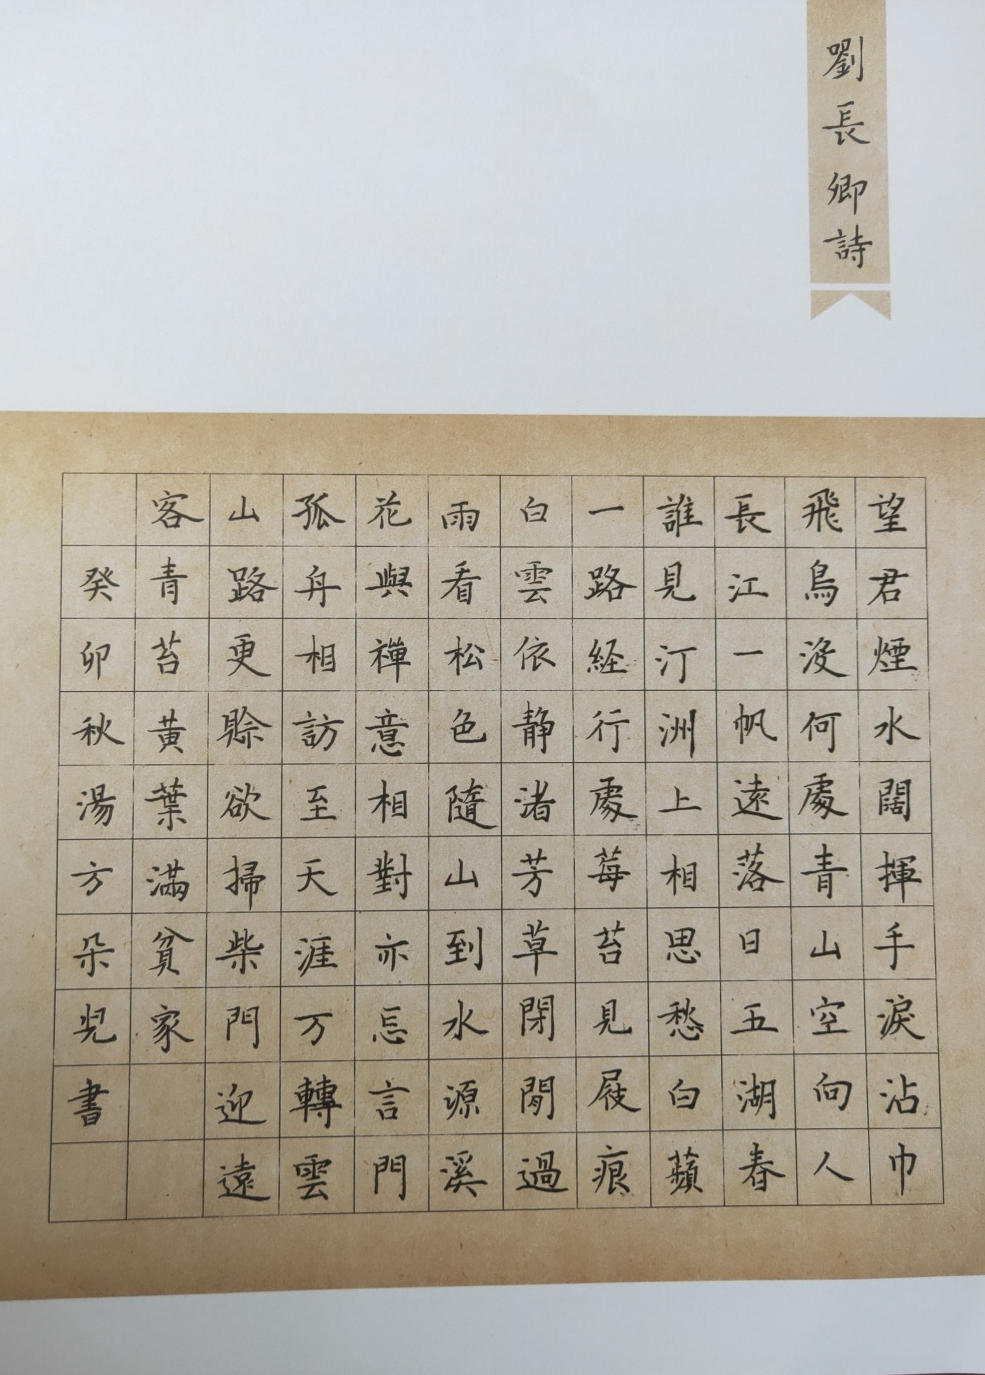 劉長卿詩
望君煙水闊揮手淚沾巾
飛鳥没何處青山空向人
長江一帆遠落日五湖春
誰見汀洲上相思愁白蘋
一路経行處莓苔見屐痕
白雲依静渚芳草閉閒過
雨看松色隨山到水源溪
花與禪意相對亦忘言門
孤舟相訪至天涯万轉雲
山路更賒欲掃柴門迎遠
客青苔黃葉滿貧家
癸卯秋湯方朵兒書